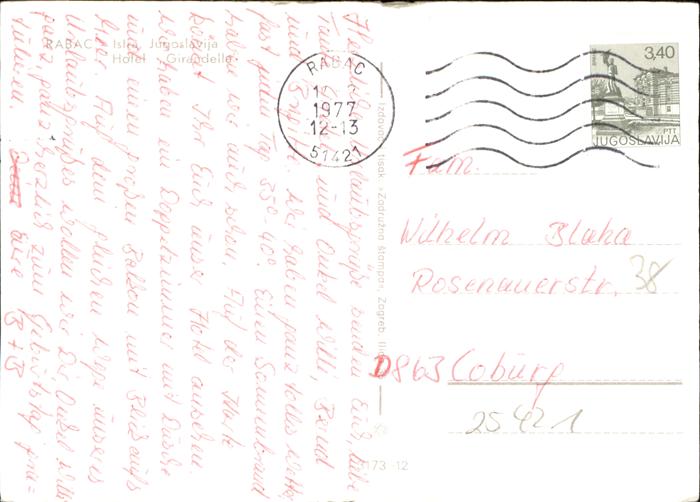 RABAC Istra Jugoslavija
Hotel Girandella
Herzliche Urlaubsgrüße senden Euch, liebe
Tante und Onkel Willi, Bernd
und Wir haben ganz tolles Wetter,
fast jeden Tag 35°-40°. Einen Sonnenbrand
haben wir auch schon. Auf der Karte
könnt Ihr Euch unser Hotel ansehen.
Wir haben ein Doppelzimmer mit Dusche
und einen großen Balkon mit Blick aufs
Meer. Auf dem gleichen Wege unseres
Urlaubsgrußes wollen wir Dir Onkel Willi
ganz ganz herzlich zum Geburtstag gra-
tulieren.
Eure B + B
Izdovač i tisak »Zadružna štampa«, Zagreb
173-12
RABAC
1977
12-13
51421
3,40
PTT
JUGOSLAVIJA
Fam.
Wilhelm Blaha
Rosenauerstr. 38
D863 Coburg
25421